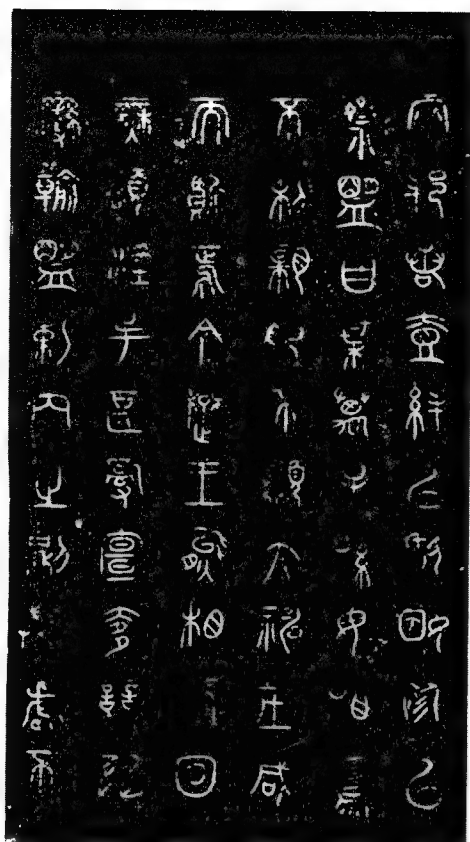 兩邦若壹絆以婚姻袗以
齊盟曰枼萬子孫毋相為
不利親卬不顯大神巫咸
而質焉今楚王熊相康回
無道淫失甚亂宣奓競從
變輸盟剌内之則虐不